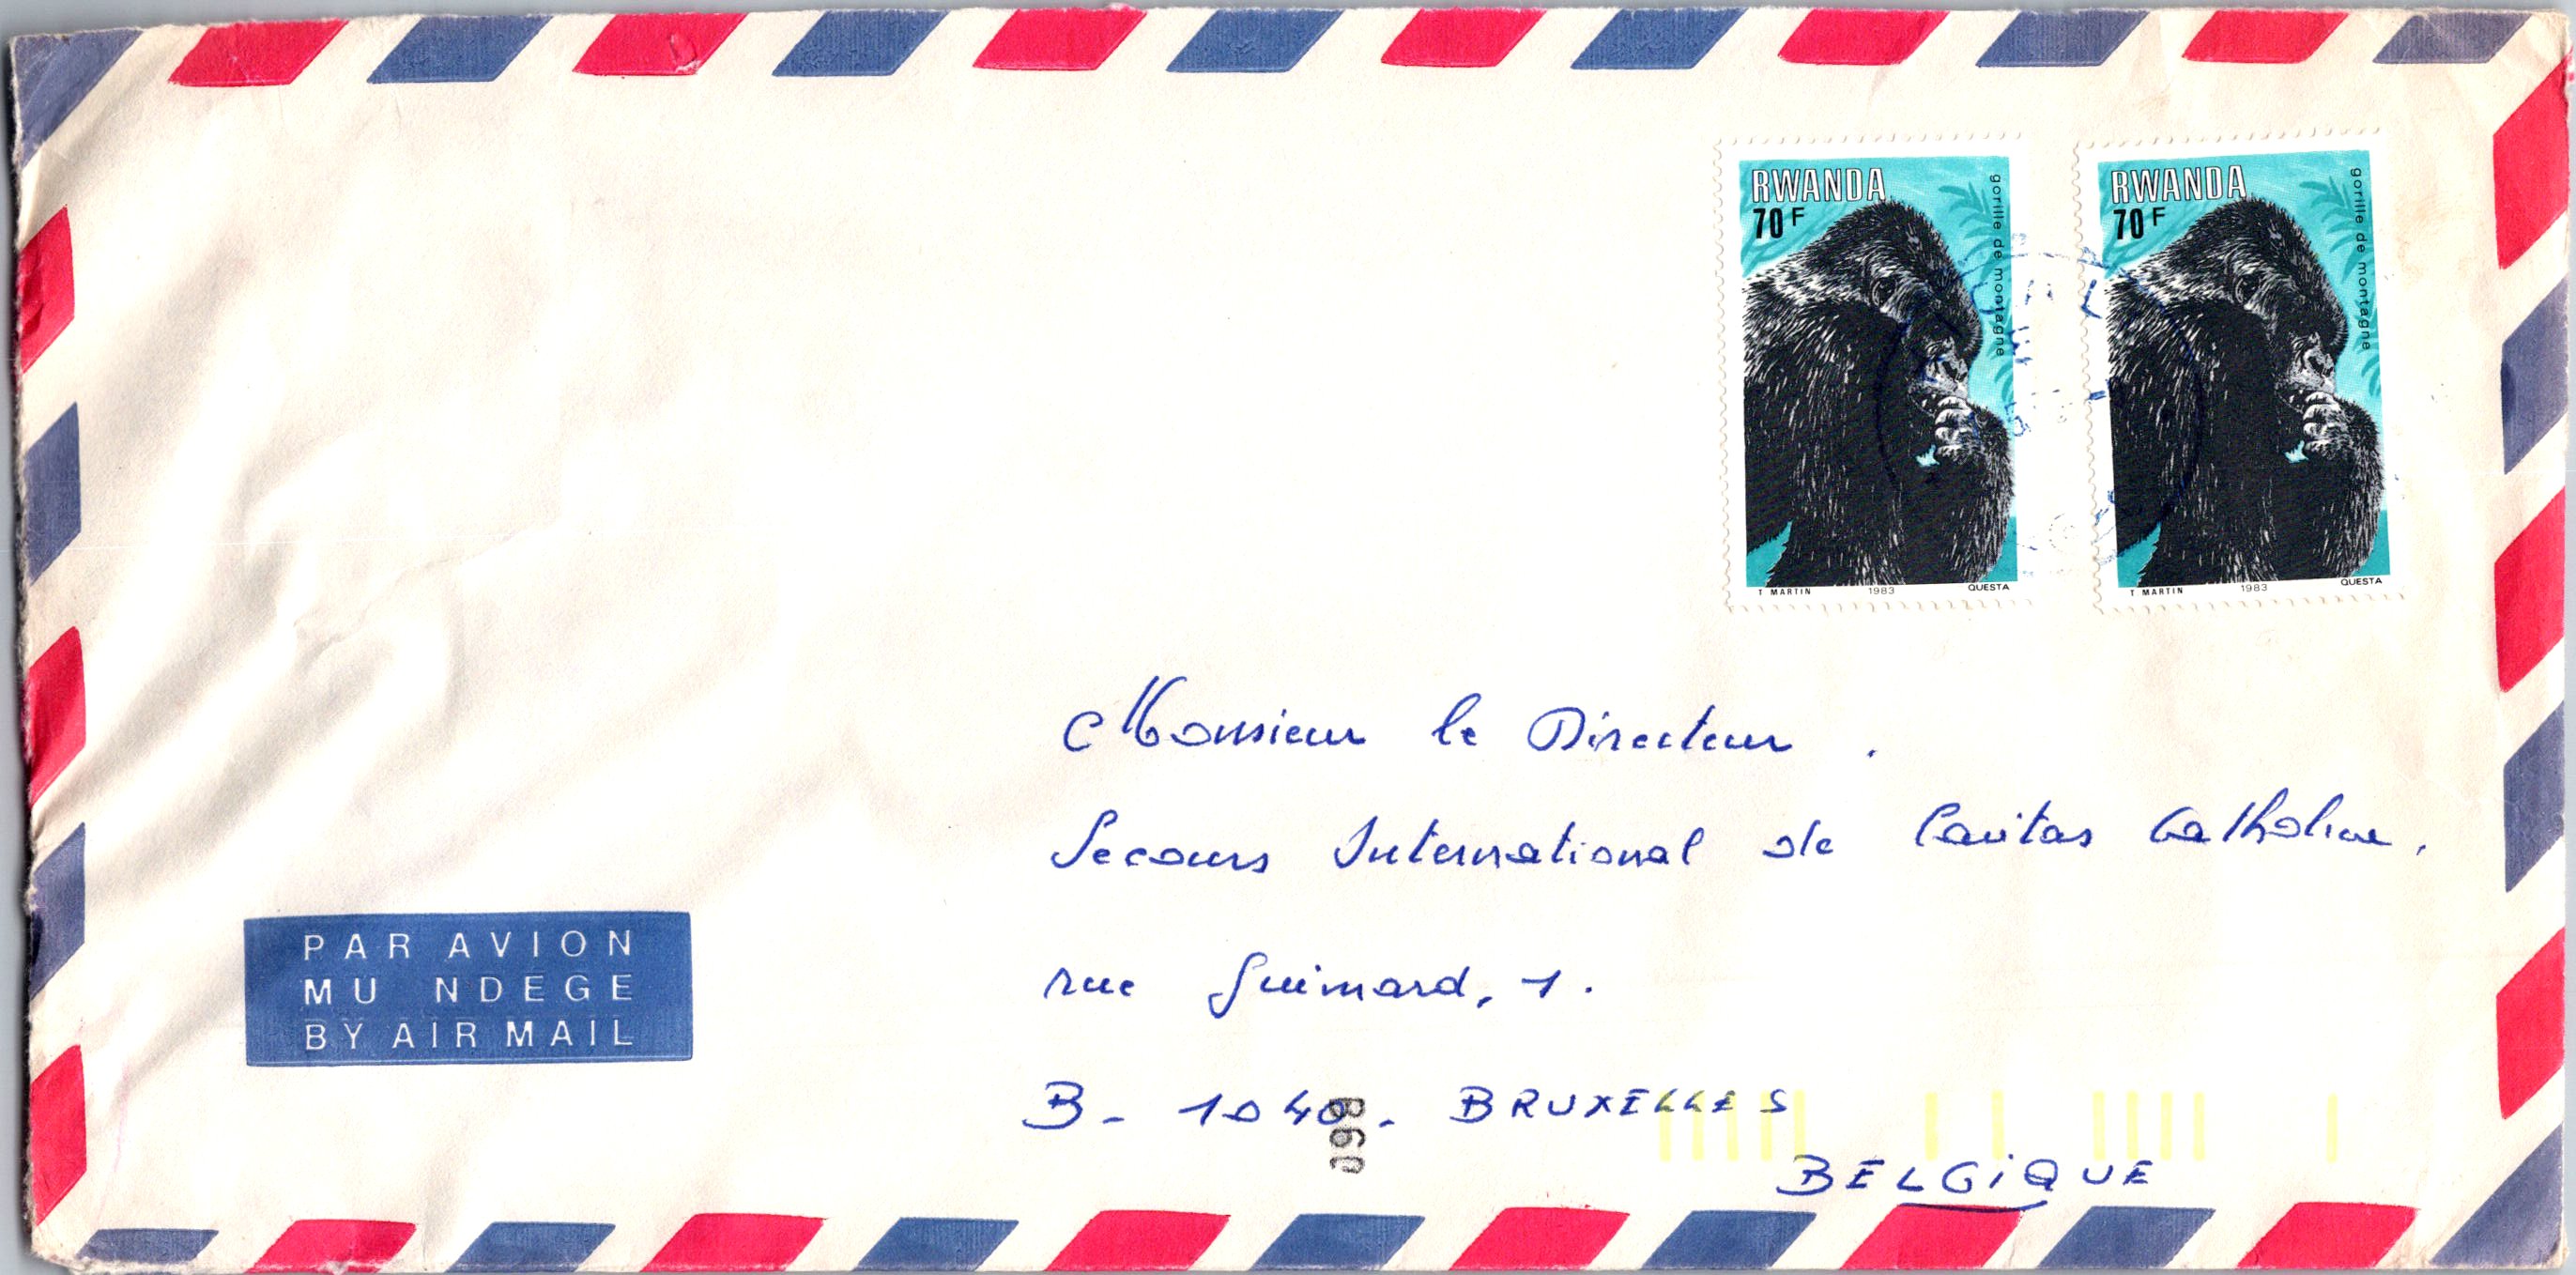 RWANDA
70 F
gorille de montagne
T MARTIN 1983 QUESTA
RWANDA
70 F
gorille de montagne
T MARTIN 1983 QUESTA
Monsieur le Directeur.
Secours International de Caritas Catholica,
rue Guimard, 1.
B - 1040 - BRUXELLES
BELGIQUE
PAR AVION
MU NDEGE
BY AIR MAIL
860